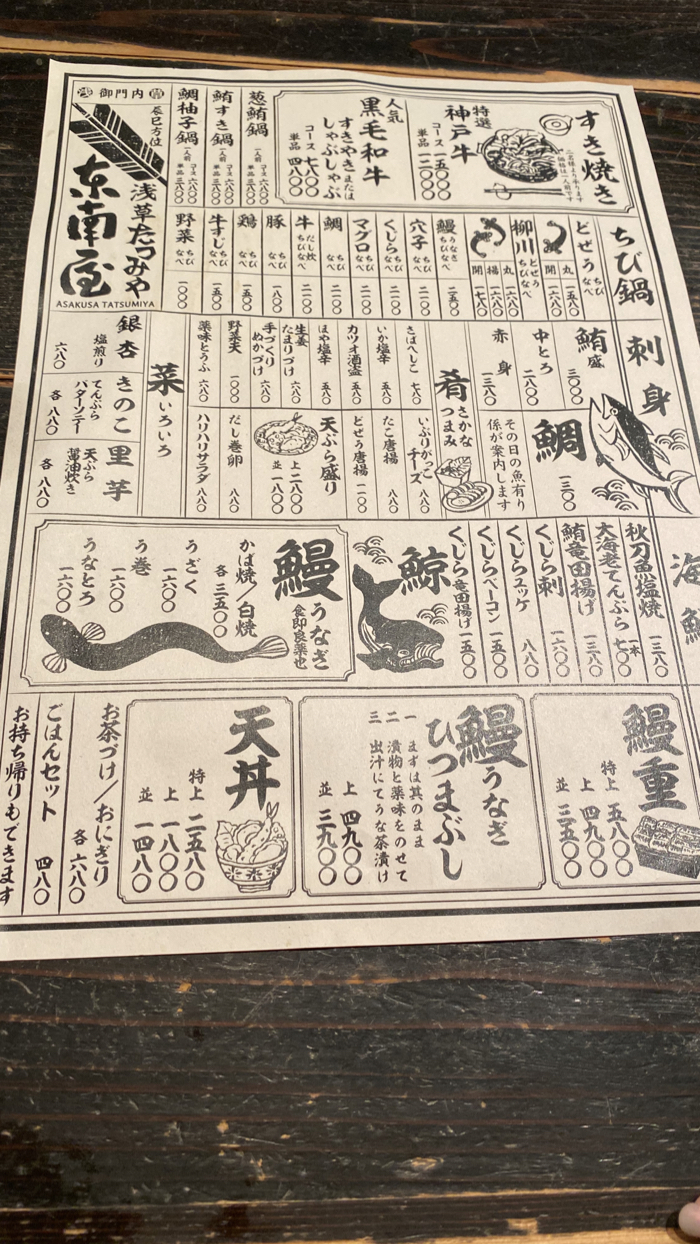 すき焼き
二名様より承ります
価格は一人前です
特選
神戸牛
コース 一五〇〇〇
単品 一二〇〇〇
人気
黒毛和牛
すきやきまたは
しゃぶしゃぶ
コース 七八〇〇
単品 四八〇〇
葱鮪鍋
一人前
コース 六八〇〇
単品 三八〇〇
鮪すき鍋
一人前
コース 六八〇〇
単品 三八〇〇
鯛柚子鍋
一人前
コース 六八〇〇
単品 三八〇〇
御門内
辰巳方位
浅草たつみや
东南屋
ASAKUSA TATSUMIYA
ちび鍋
どぜうちびなべ
丸 一五八〇
開 一六八〇
柳川どぜうちびなべ
丸 一六八〇
揚 一六八〇
開 一七八〇
鰻うなぎちびなべ 二五〇〇
穴子ちびなべ 二一〇〇
くじらちびなべ 二一〇〇
マグロちびなべ 二一〇〇
鯛ちびなべ 二一〇〇
牛だし炊ちびなべ 二一〇〇
豚ちびなべ 一八〇〇
鶏ちびなべ 一五〇〇
牛すじちびなべ 一五〇〇
野菜ちびなべ 一〇〇〇
刺身
鮪盛 三〇〇〇
中とろ 二八〇〇
赤身 一三八〇
鯛 一三〇〇
その日の魚有り
係が案内します
肴 さかな つまみ
さばへしこ 七八〇
いか塩辛 五八〇
カツオ酒盗 五八〇
ほや塩辛 五八〇
生姜たまりづけ 六八〇
手づくりぬかづけ 六八〇
野菜天 一〇〇〇
薬味とうふ 六八〇
いぶりがっこチーズ 八八〇
たこ唐揚 八八〇
どぜう唐揚 一一〇〇
天ぷら盛り
上 二八〇〇
並 一八〇〇
だし巻卵 八八〇
ハリハリサラダ 八八〇
菜 いろいろ
銀杏
塩煎り
六八〇
きのこ
てんぷら
バターソテー
各 八八〇
里芋
天ぷら
醤油炊き
各 八八〇
海鮮
秋刀魚塩焼 一三八〇
大海老てんぷら 一本 七〇〇
鮪竜田揚げ 一三八〇
くじら刺 一六八〇
くじらユッケ 八八〇
くじらベーコン 一五〇〇
くじら竜田揚げ 一五〇〇
鯨
鰻うなぎ
食即良薬也
かば焼/白焼
各 三五〇〇
うざく
一六〇〇
う巻
一六〇〇
うなとろ
一六〇〇
鰻重
特上 五八〇〇
上 四九〇〇
並 三五〇〇
鰻うなぎ
ひつまぶし
一 まずは其のまま
二 漬物と薬味をのせて
三 出汁にてうな茶漬け
上 四九〇〇
並 三九〇〇
天丼
特上 二五八〇
上 一八〇〇
並 一四八〇
お茶づけ/おにぎり
各 六八〇
ごはんセット 四八〇
お持ち帰りもできます